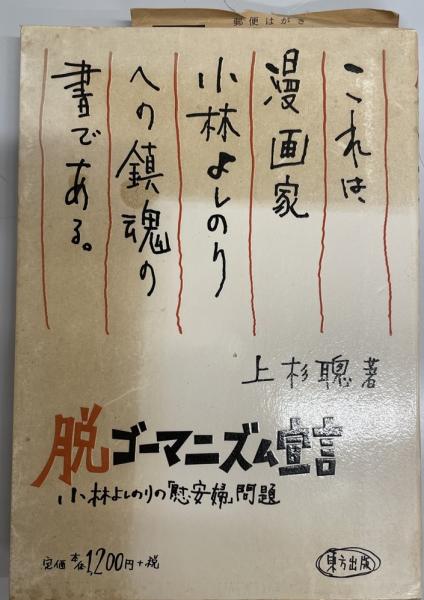 郵便はがき
これは、
漫画家
小林よしのり
への鎮魂の
書である。
上杉聰著
脱ゴーマニズム宣言
小林よしのりの「慰安婦」問題
定価 本体1,200円+税
東方出版